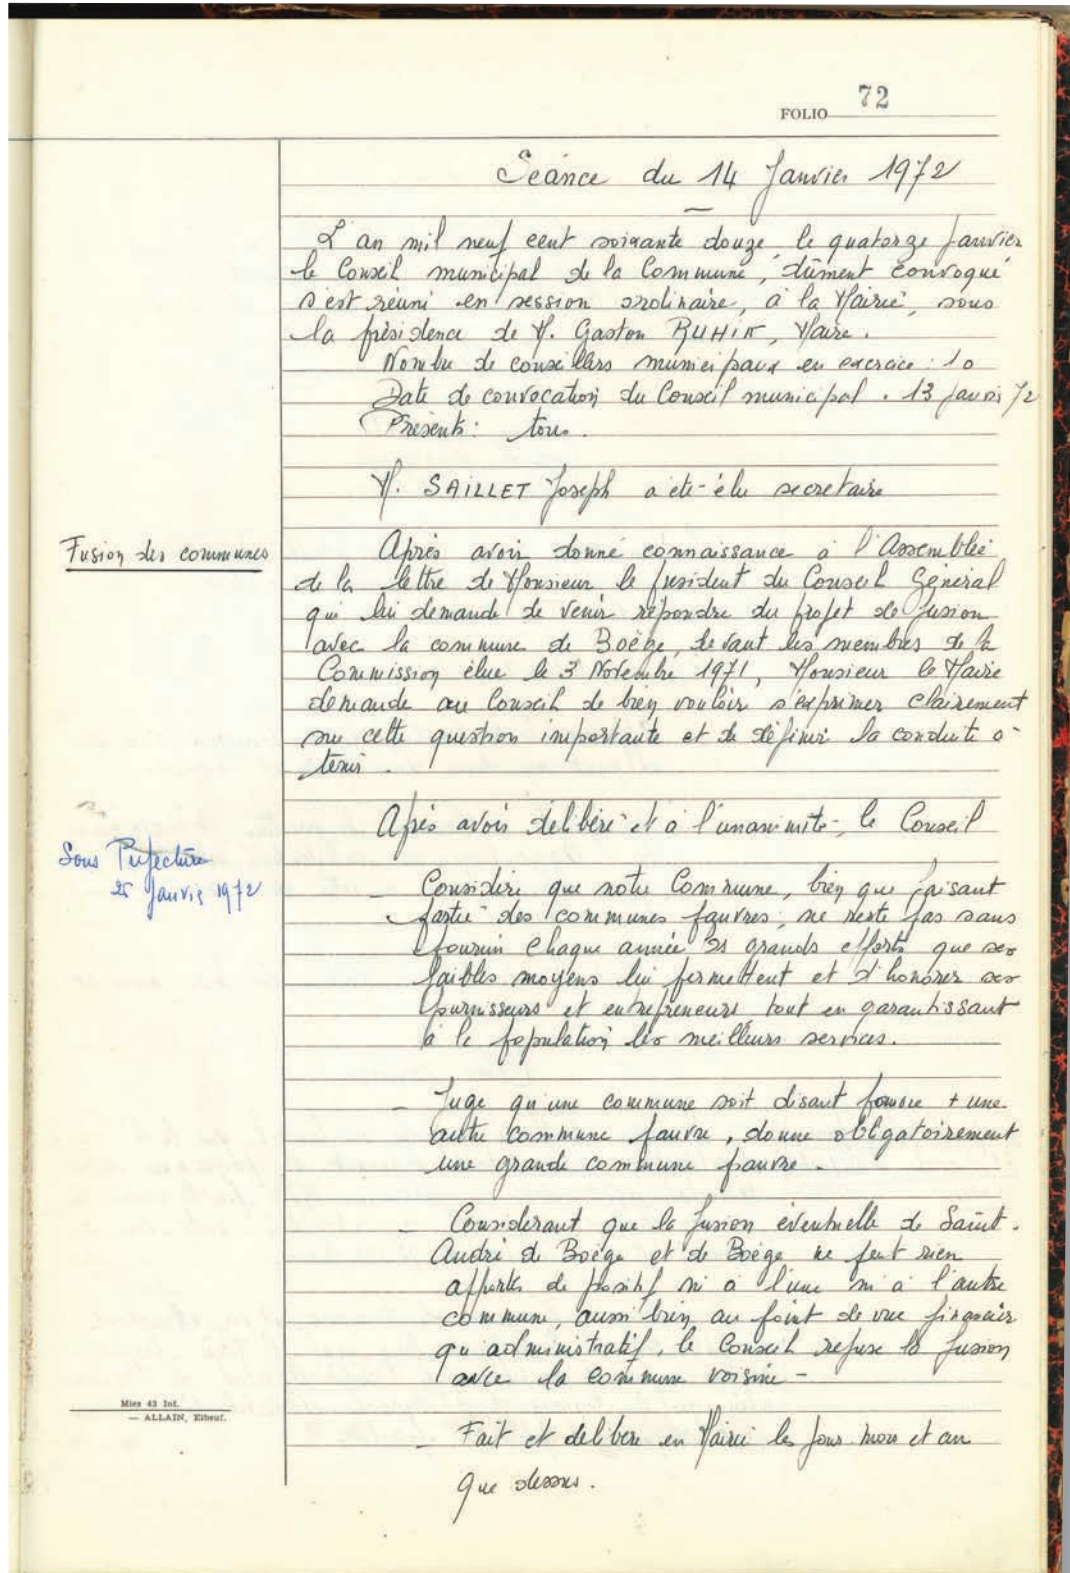 FOLIO 72
Séance du 14 Janvier 1972
L'an mil neuf cent soixante douze le quatorze Janvier
le Conseil municipal de la Commune, dûment convoqué
s'est réuni en session ordinaire, à la Mairie, sous
la présidence de M. Gaston, Maire.
Nombre de conseillers municipaux en exercice : 10
Date de convocation du Conseil municipal . 13 janvier 72
Présents : tous.
M. SAILLET Joseph a été élu secrétaire
Fusion des communes
Après avoir donné connaissance à l'Assemblée
de la lettre de Monsieur le président du Conseil Général
qui lui demande de venir répondre du projet de fusion
avec la commune de Boëge, devant les membres de la
Commission élue le 3 Novembre 1971, Monsieur le Maire
demande au Conseil de bien vouloir s'exprimer clairement
sur cette question importante et de définir la conduite à
tenir.
Après avoir délibéré et à l'unanimité, le Conseil
Sous Préfecture
25 Janvier 1972
_ Considère que notre Commune, bien que faisant
partie des communes pauvres, ne reste pas sans
fournir chaque année des grands efforts que ses
faibles moyens lui permettent et d'honorer ses
fournisseurs et entrepreneurs tout en garantissant
à la population les meilleurs services.
_ Juge qu'une commune soit disant pauvre + une
autre commune pauvre, donne obligatoirement
une grande commune pauvre.
_ Considérant que la fusion éventuelle de Saint.
André de Boëge et de Boëge ne peut rien
apporter de positif ni à l'une ni à l'autre
commune, aussi bien au point de vue financier
qu'administratif, le Conseil refuse la fusion
avec la commune voisine -
Mies 43 Int.
— ALLAIN, Elbeuf.
_ Fait et délibéré en Mairie les jour mois et an
que dessus.